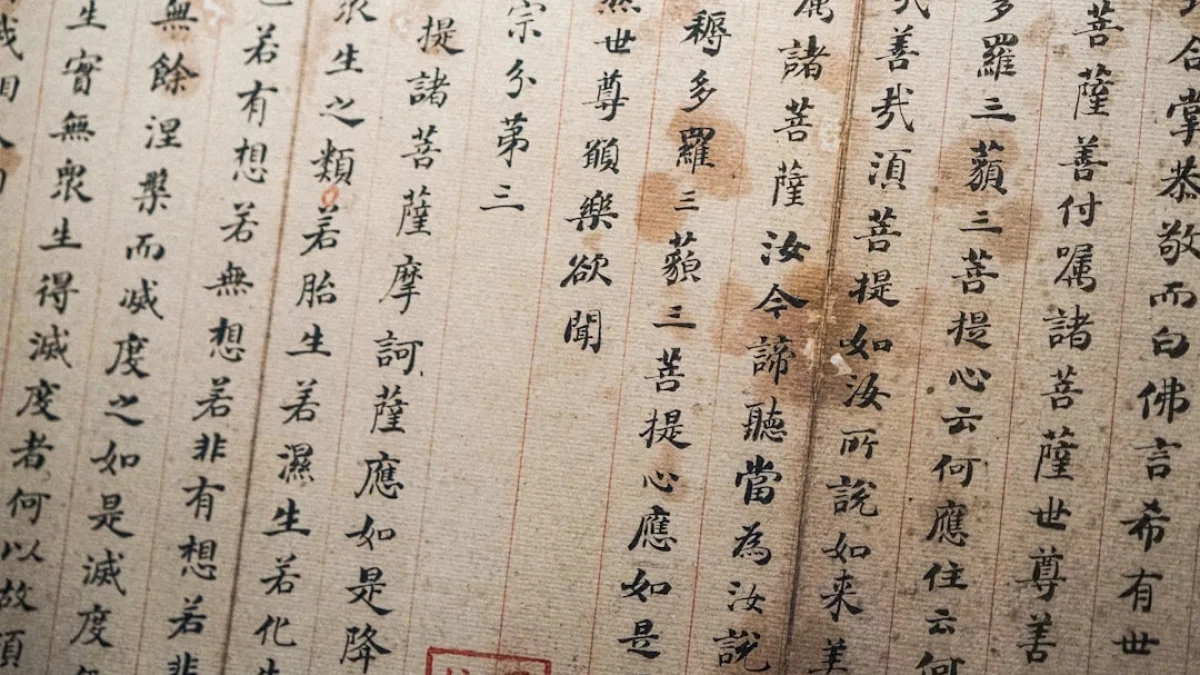 合掌恭敬而白佛言希有世
菩薩善付囑諸菩薩世尊善
多羅三藐三菩提心云何應住云何
哉善哉須菩提如汝所說如来
諸菩薩汝今諦聽當為汝說
耨多羅三藐三菩提心應如是
然世尊願樂欲聞
宗分第三
提諸菩薩摩訶薩應如是降
眾生之類若胎生若濕生若化生
若有想若無想若非有想若非
無餘涅槃而滅度之如是滅度
生實無眾生得滅度者何以故須